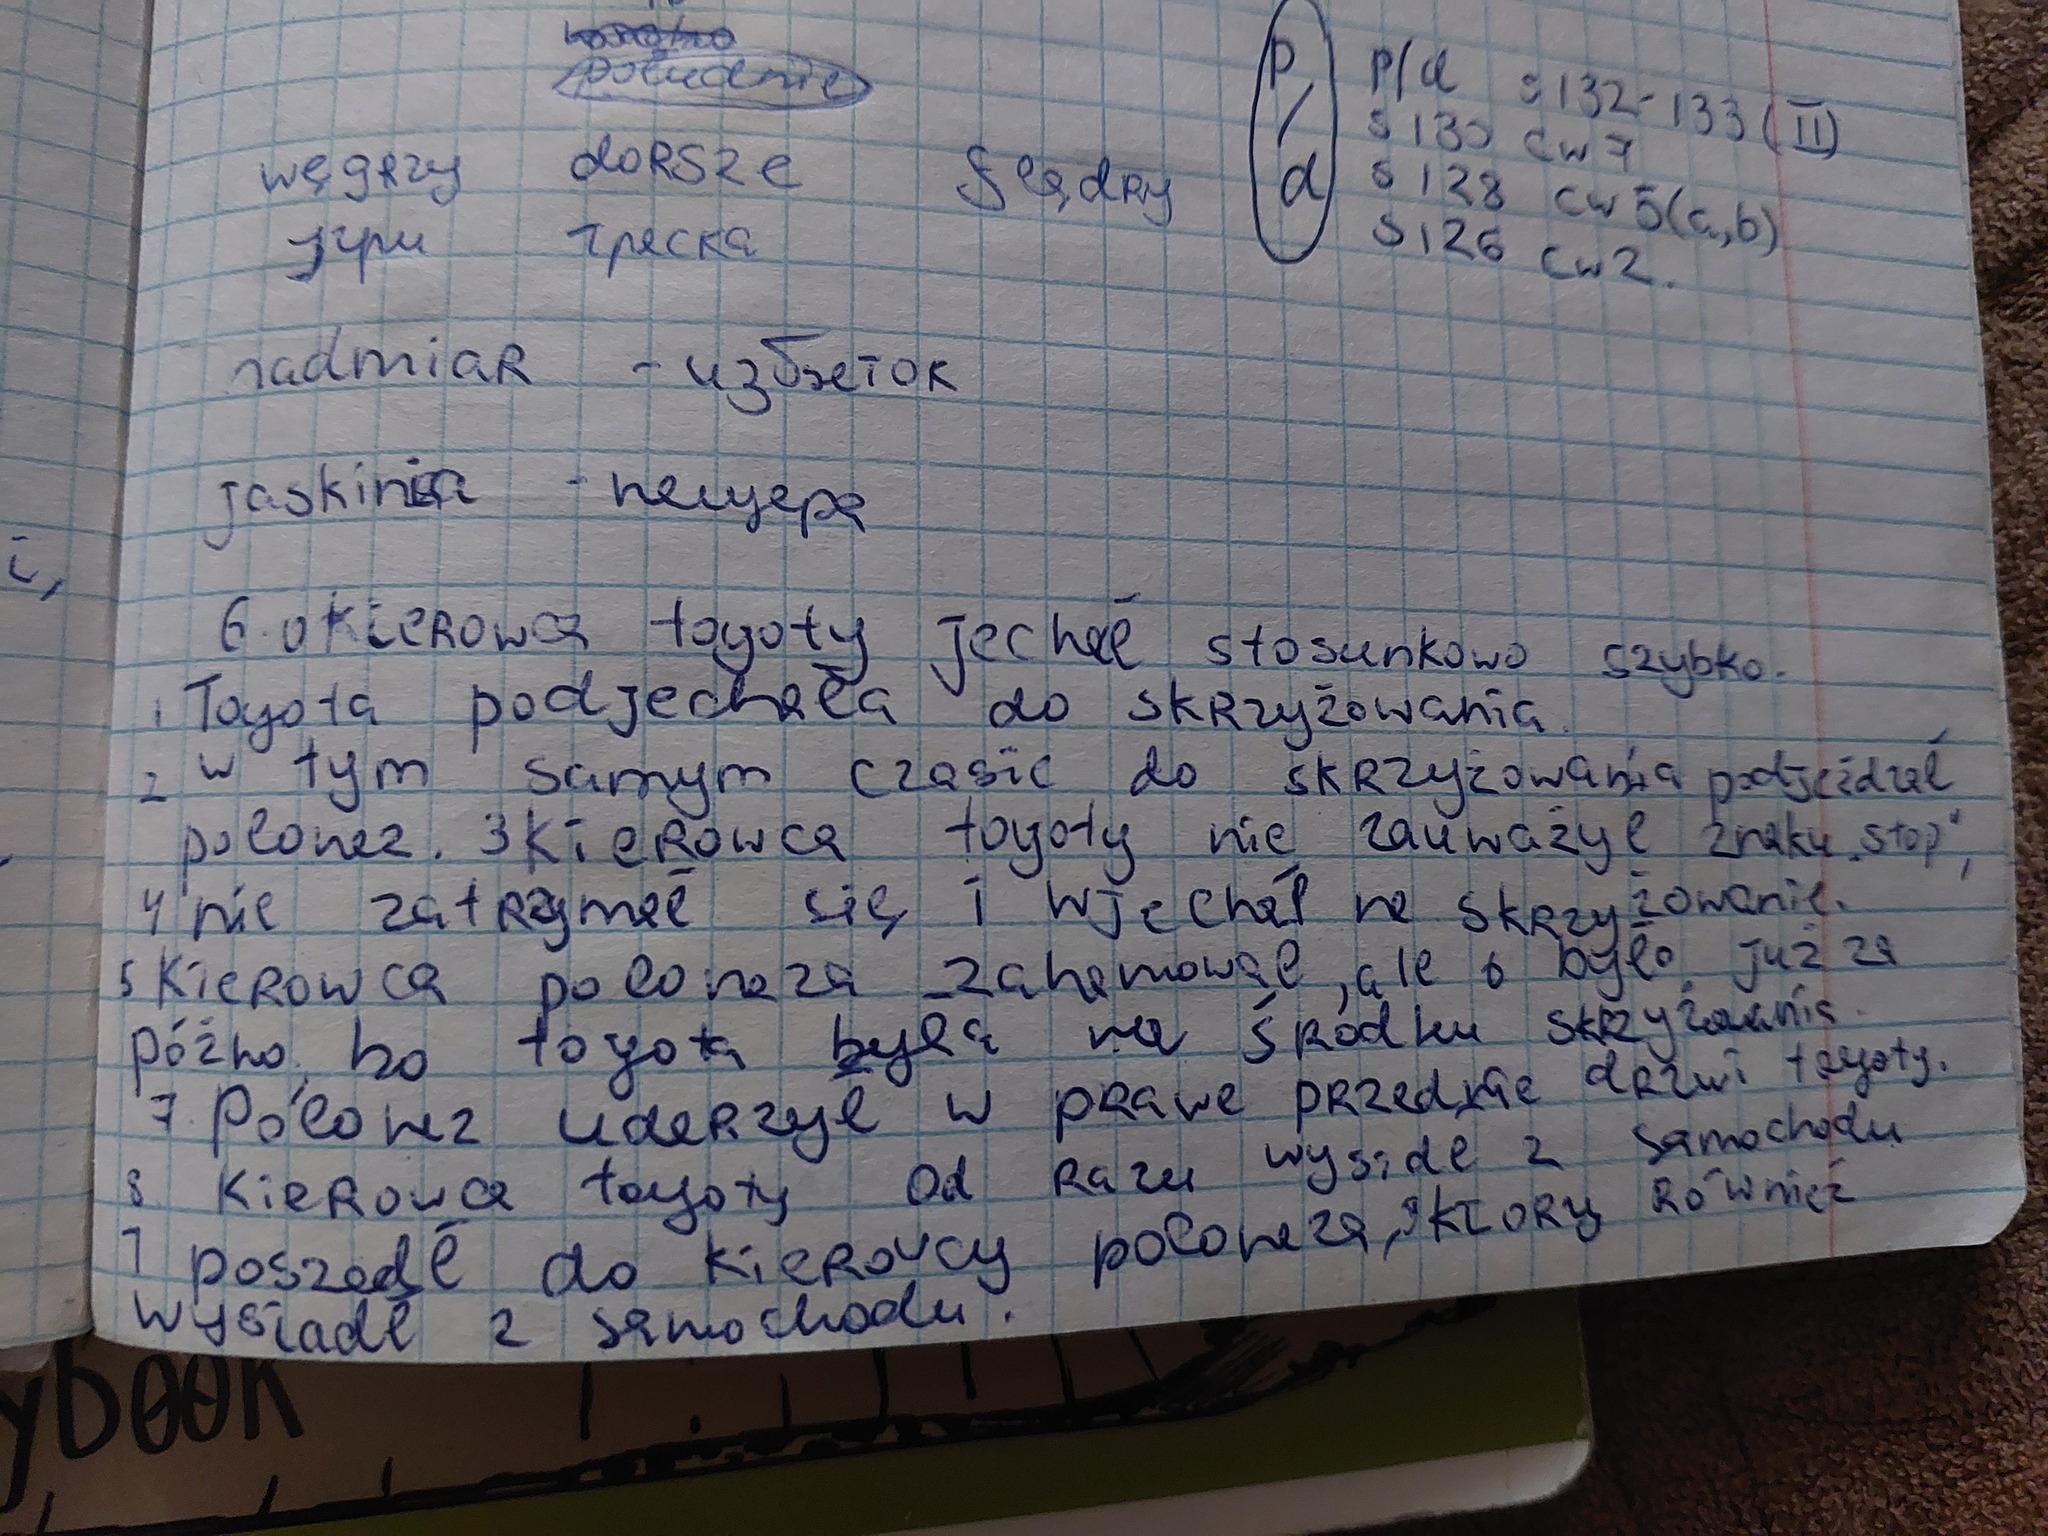 południe
p/d
p/d s 132-133 (II)
s 130 cw 7
s 128 cw 5(a,b)
s 126 cw 2.
węgrzy dorsze flądry
угри треска
nadmiar - избыток
jaskinia - пещера
6. 0 Kierowca toyoty jechał stosunkowo szybko.
1 Toyota podjechała do skrzyżowania.
2 w tym samym czasie do skrzyżowania podjeżdżał
polonez. 3 Kierowca toyoty nie zauważył znaku „stop",
4 nie zatrzymał się i wjechał na skrzyżowanie.
5 Kierowca poloneza zahamował, ale 6 było już za
późno, bo toyota była na środku skrzyżowania.
7. Polonez uderzył w prawe przednie drzwi toyoty.
8. Kierowca toyoty od razu wysidł z samochodu
i poszedł do kierowcy poloneza, 9 który również
wysiadł z samochodu.
ybook